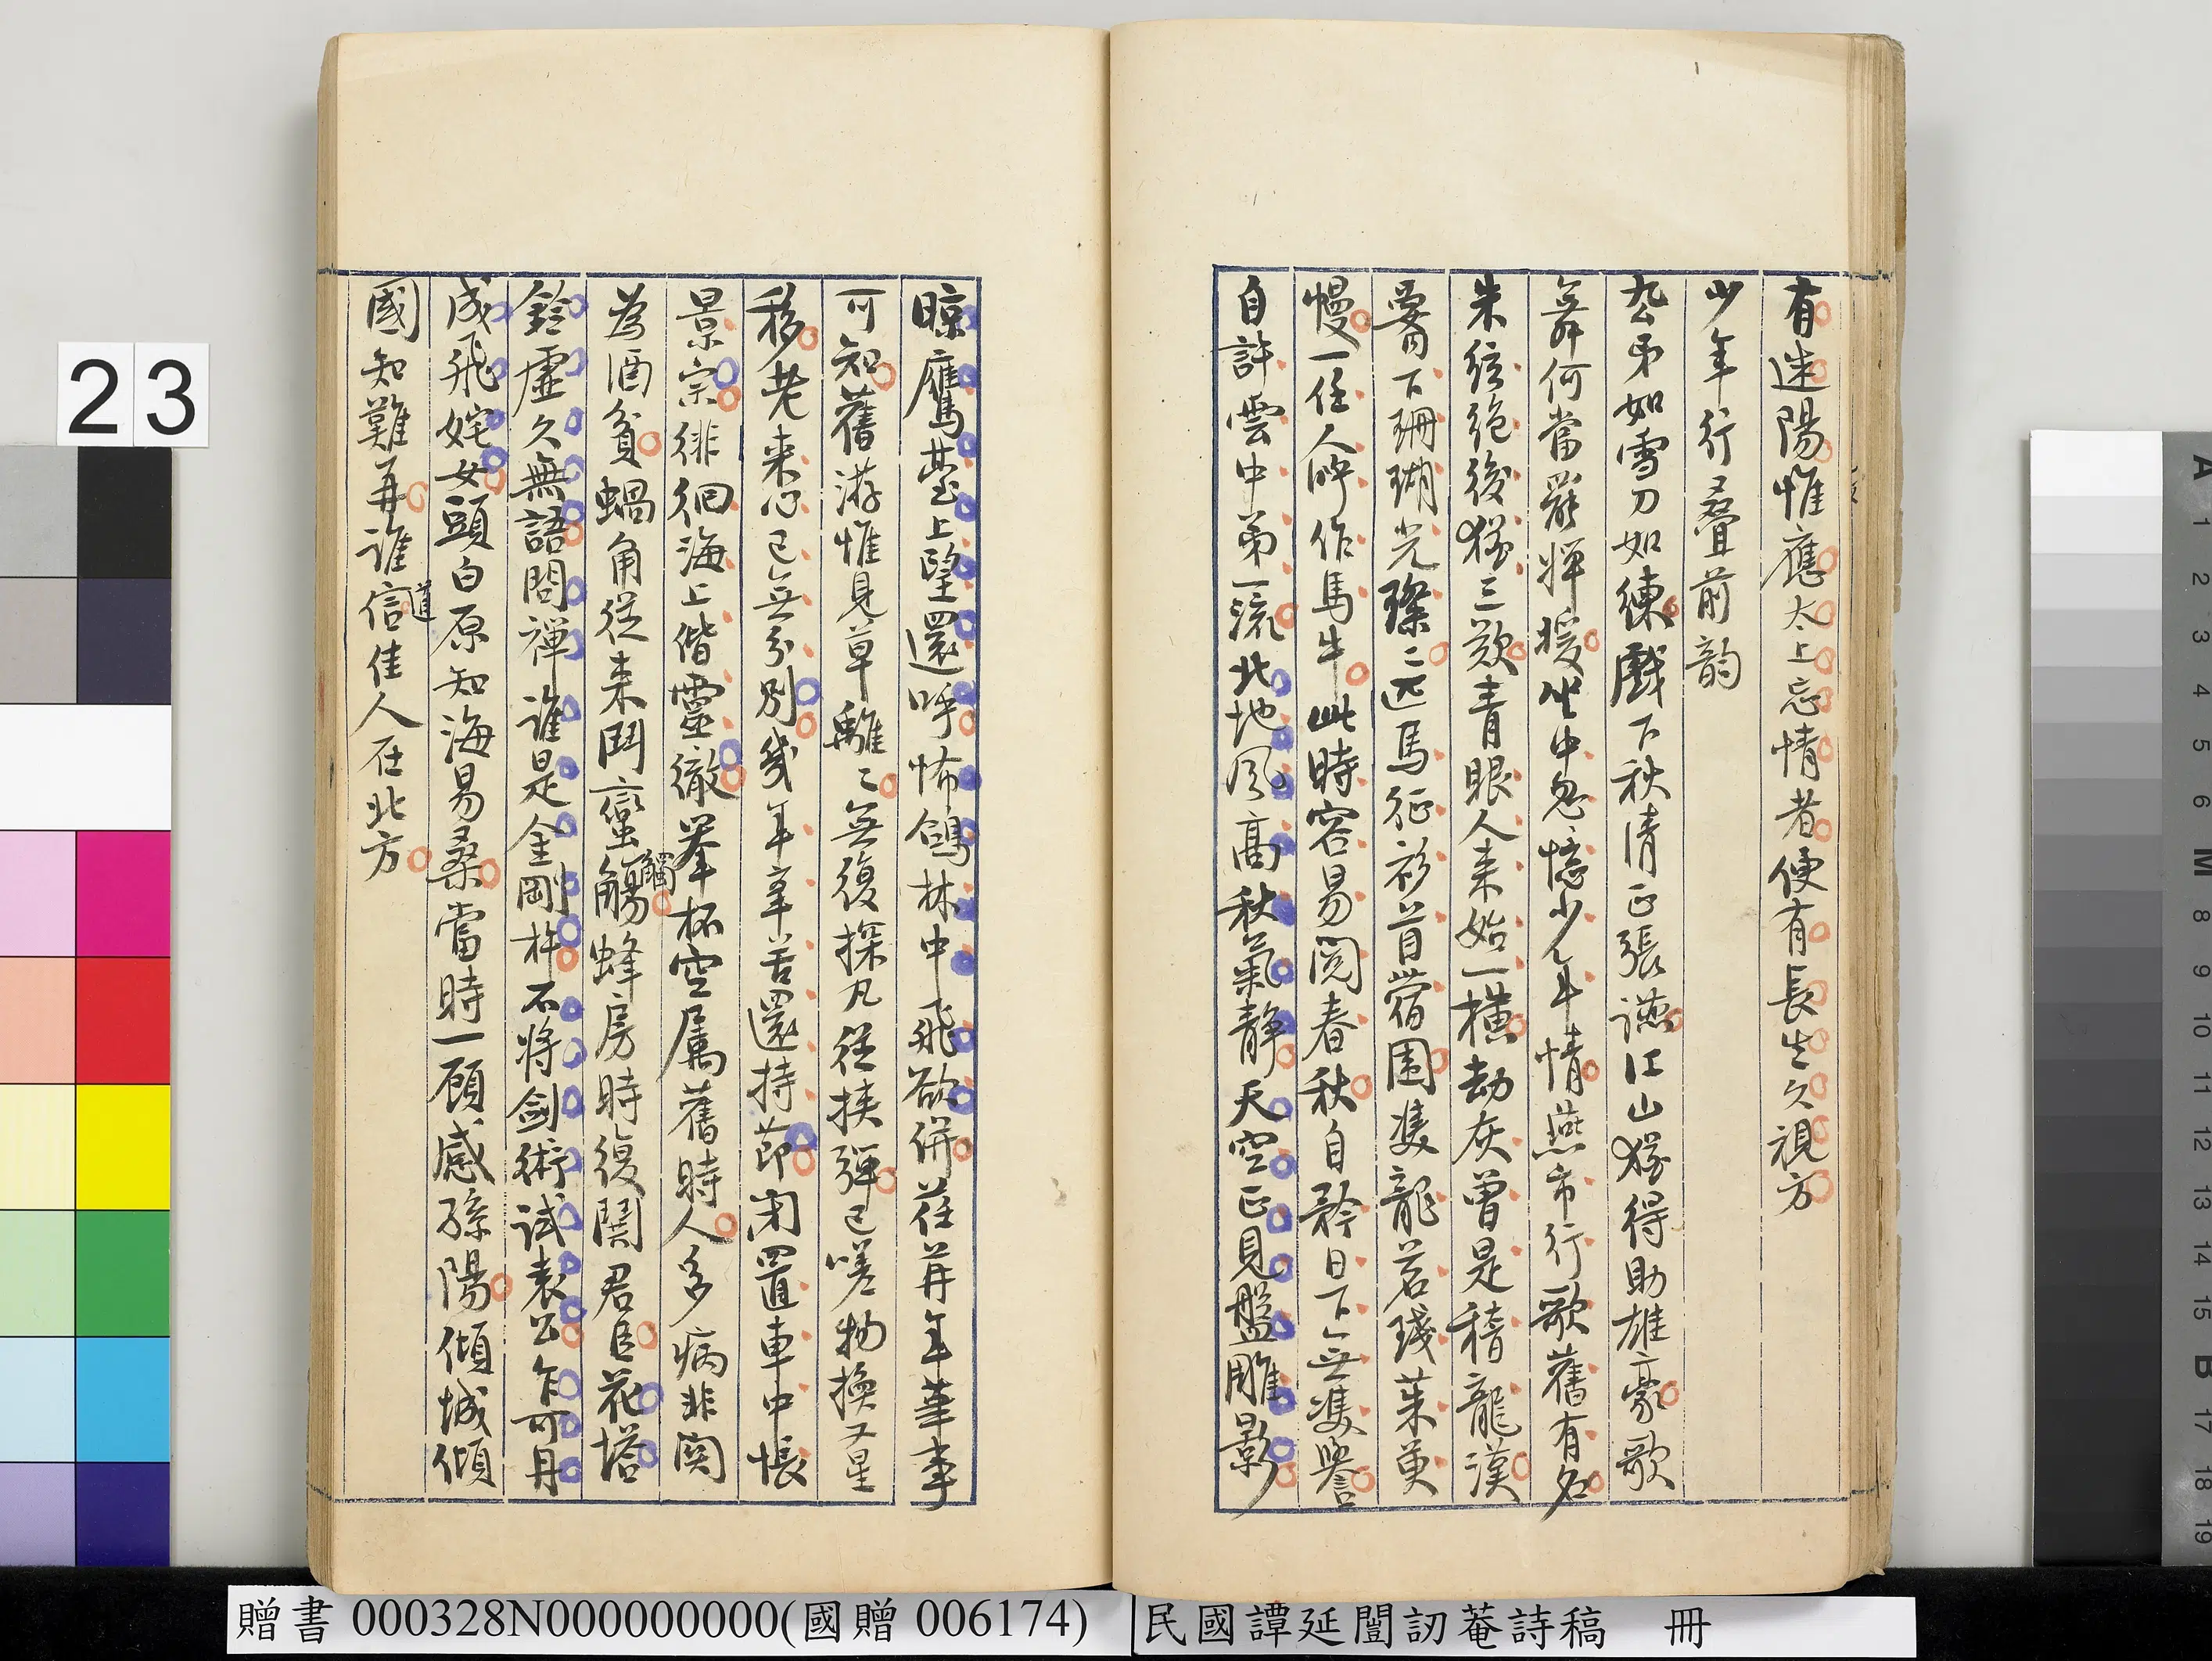 有迷陽惟應太上忘情者便有長生久視方
少年行疊前韵
公弟如雪刀如練戲下秋清正張讌江山猶得助雄豪歌
舞何當罷輝煖坐中忽憶少年情燕市行歌舊有名
朱弦絶後猶三歎青眼人來始一横劫灰曾是稽龍漢
鬢下珊瑚光璨〻匹馬征衫苜蓿園雙龍茗琖茱萸
幔一任人呼作馬牛此時容易閲春秋自矜日下無雙譽
自許雲中弟一流北地風高秋氣靜天空正見盤雕影
晾鷹臺上望還呼怖鴿林中飛欲併荏苒年華事
可知舊游惟見草離〻無復探凡徑挾彈已嗟物換又星
移老來心已無分別幾年辛苦還持節閉置車中悵
景宗徘徊海上偕靈徹舉杯空屬舊時人多病非關
為酒貧蝸角從來鬥蠻觸蜂房時復鬨君臣花塔
觸
鈴虛久無語問禪誰是金剛杵不將劍術試袁公乍可丹
成飛姹女頭白原知海易桑當時一顧感孫陽傾城傾
國知難再誰信佳人在北方
道
23
贈書 000328N000000000(國贈 006174)
民國譚延闓訒菴詩稿 冊
A 1 2 3 4 5 6 M 8 9 10 11 12 13 14 15 B 17 18 19